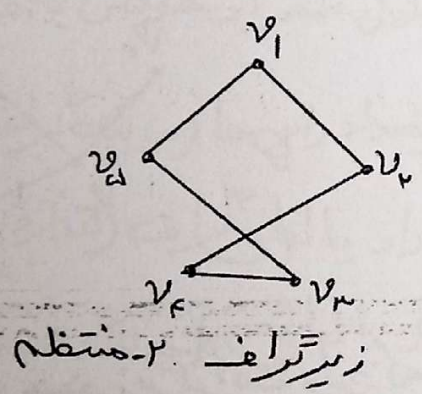 v۱
v۵
v۲
v۴
v۳
زیرگراف ۲-منتظم